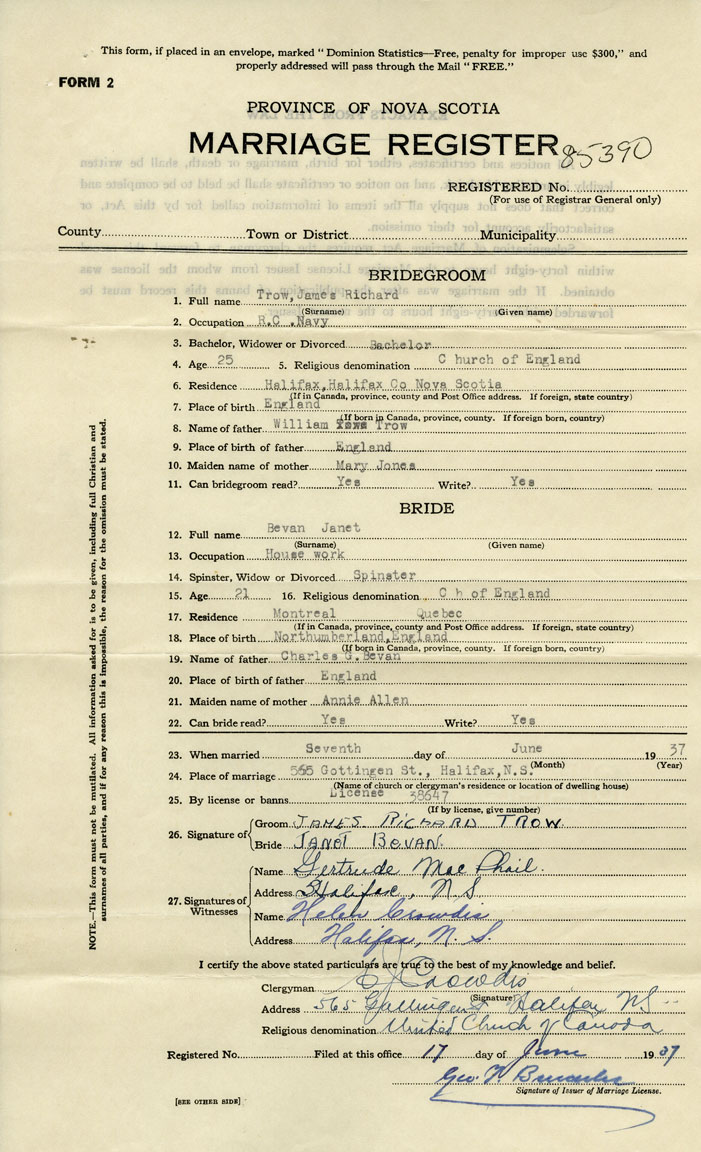 This form, if placed in an envelope, marked " Dominion Statistics—Free, penalty for improper use $300," and
properly addressed will pass through the Mail " FREE."
FORM 2
PROVINCE OF NOVA SCOTIA
MARRIAGE REGISTER
85390
REGISTERED No.
(For use of Registrar General only)
County Town or District Municipality
BRIDEGROOM
1. Full name Trow, James Richard
(Surname) (Given name)
2. Occupation R.C .Navy
3. Bachelor, Widower or Divorced Bachelor
4. Age 25 5. Religious denomination C hurch of England
6. Residence Halifax,Halifax Co Nova Scotia
(If in Canada, province, county and Post Office address. If foreign, state country)
7. Place of birth England
(If born in Canada, province, county. If foreign born, county)
8. Name of father William Trow
9. Place of birth of father England
10. Maiden name of mother Mary Jones
11. Can bridegroom read? Yes Write? Yes
BRIDE
12. Full name Bevan Janet
(Surname) (Given name)
13. Occupation House work
14. Spinster, Widow or Divorced Spinster
15. Age 21 16. Religious denomination C h of England
17. Residence Montreal Quebec
(If in Canada, province, county and Post Office address. If foreign, state country)
18. Place of birth Northumberland,England
(If born in Canada, province, county. If foreign born, county)
19. Name of father Charles G.Bevan
20. Place of birth of father England
21. Maiden name of mother Annie Allen
22. Can bride read? Yes Write? Yes
23. When married Seventh day of June 19 37
(Month) (Year)
24. Place of marriage 565 Gottingen St., Halifax,N.S.
(Name of church or clergyman's residence or location of dwelling house)
25. By license or banns License 38647
(If by license, give number)
26. Signature of Groom JAMES RICHARD TROW.
Bride JANET BEVAN.
27. Signatures of Witnesses
Name Gertrude MacPhail.
Address Halifax, N S
Name Helen Crowdis
Address Halifax, N. S.
I certify the above stated particulars are true to the best of my knowledge and belief.
Clergyman C J Crowdis
(Signature)
Address 565 Gottingen St Halifax NS
Religious denomination United Church of Canada
Registered No. Filed at this office 17 day of June 19 37
Geo. F.
Signature of Issuer of Marriage License.
[SEE OTHER SIDE]
NOTE.—This form must not be mutilated. All information asked for is to be given, including full Christian and
surnames of all parties, and if for any reason this is impossible, the reason for the omission must be stated.